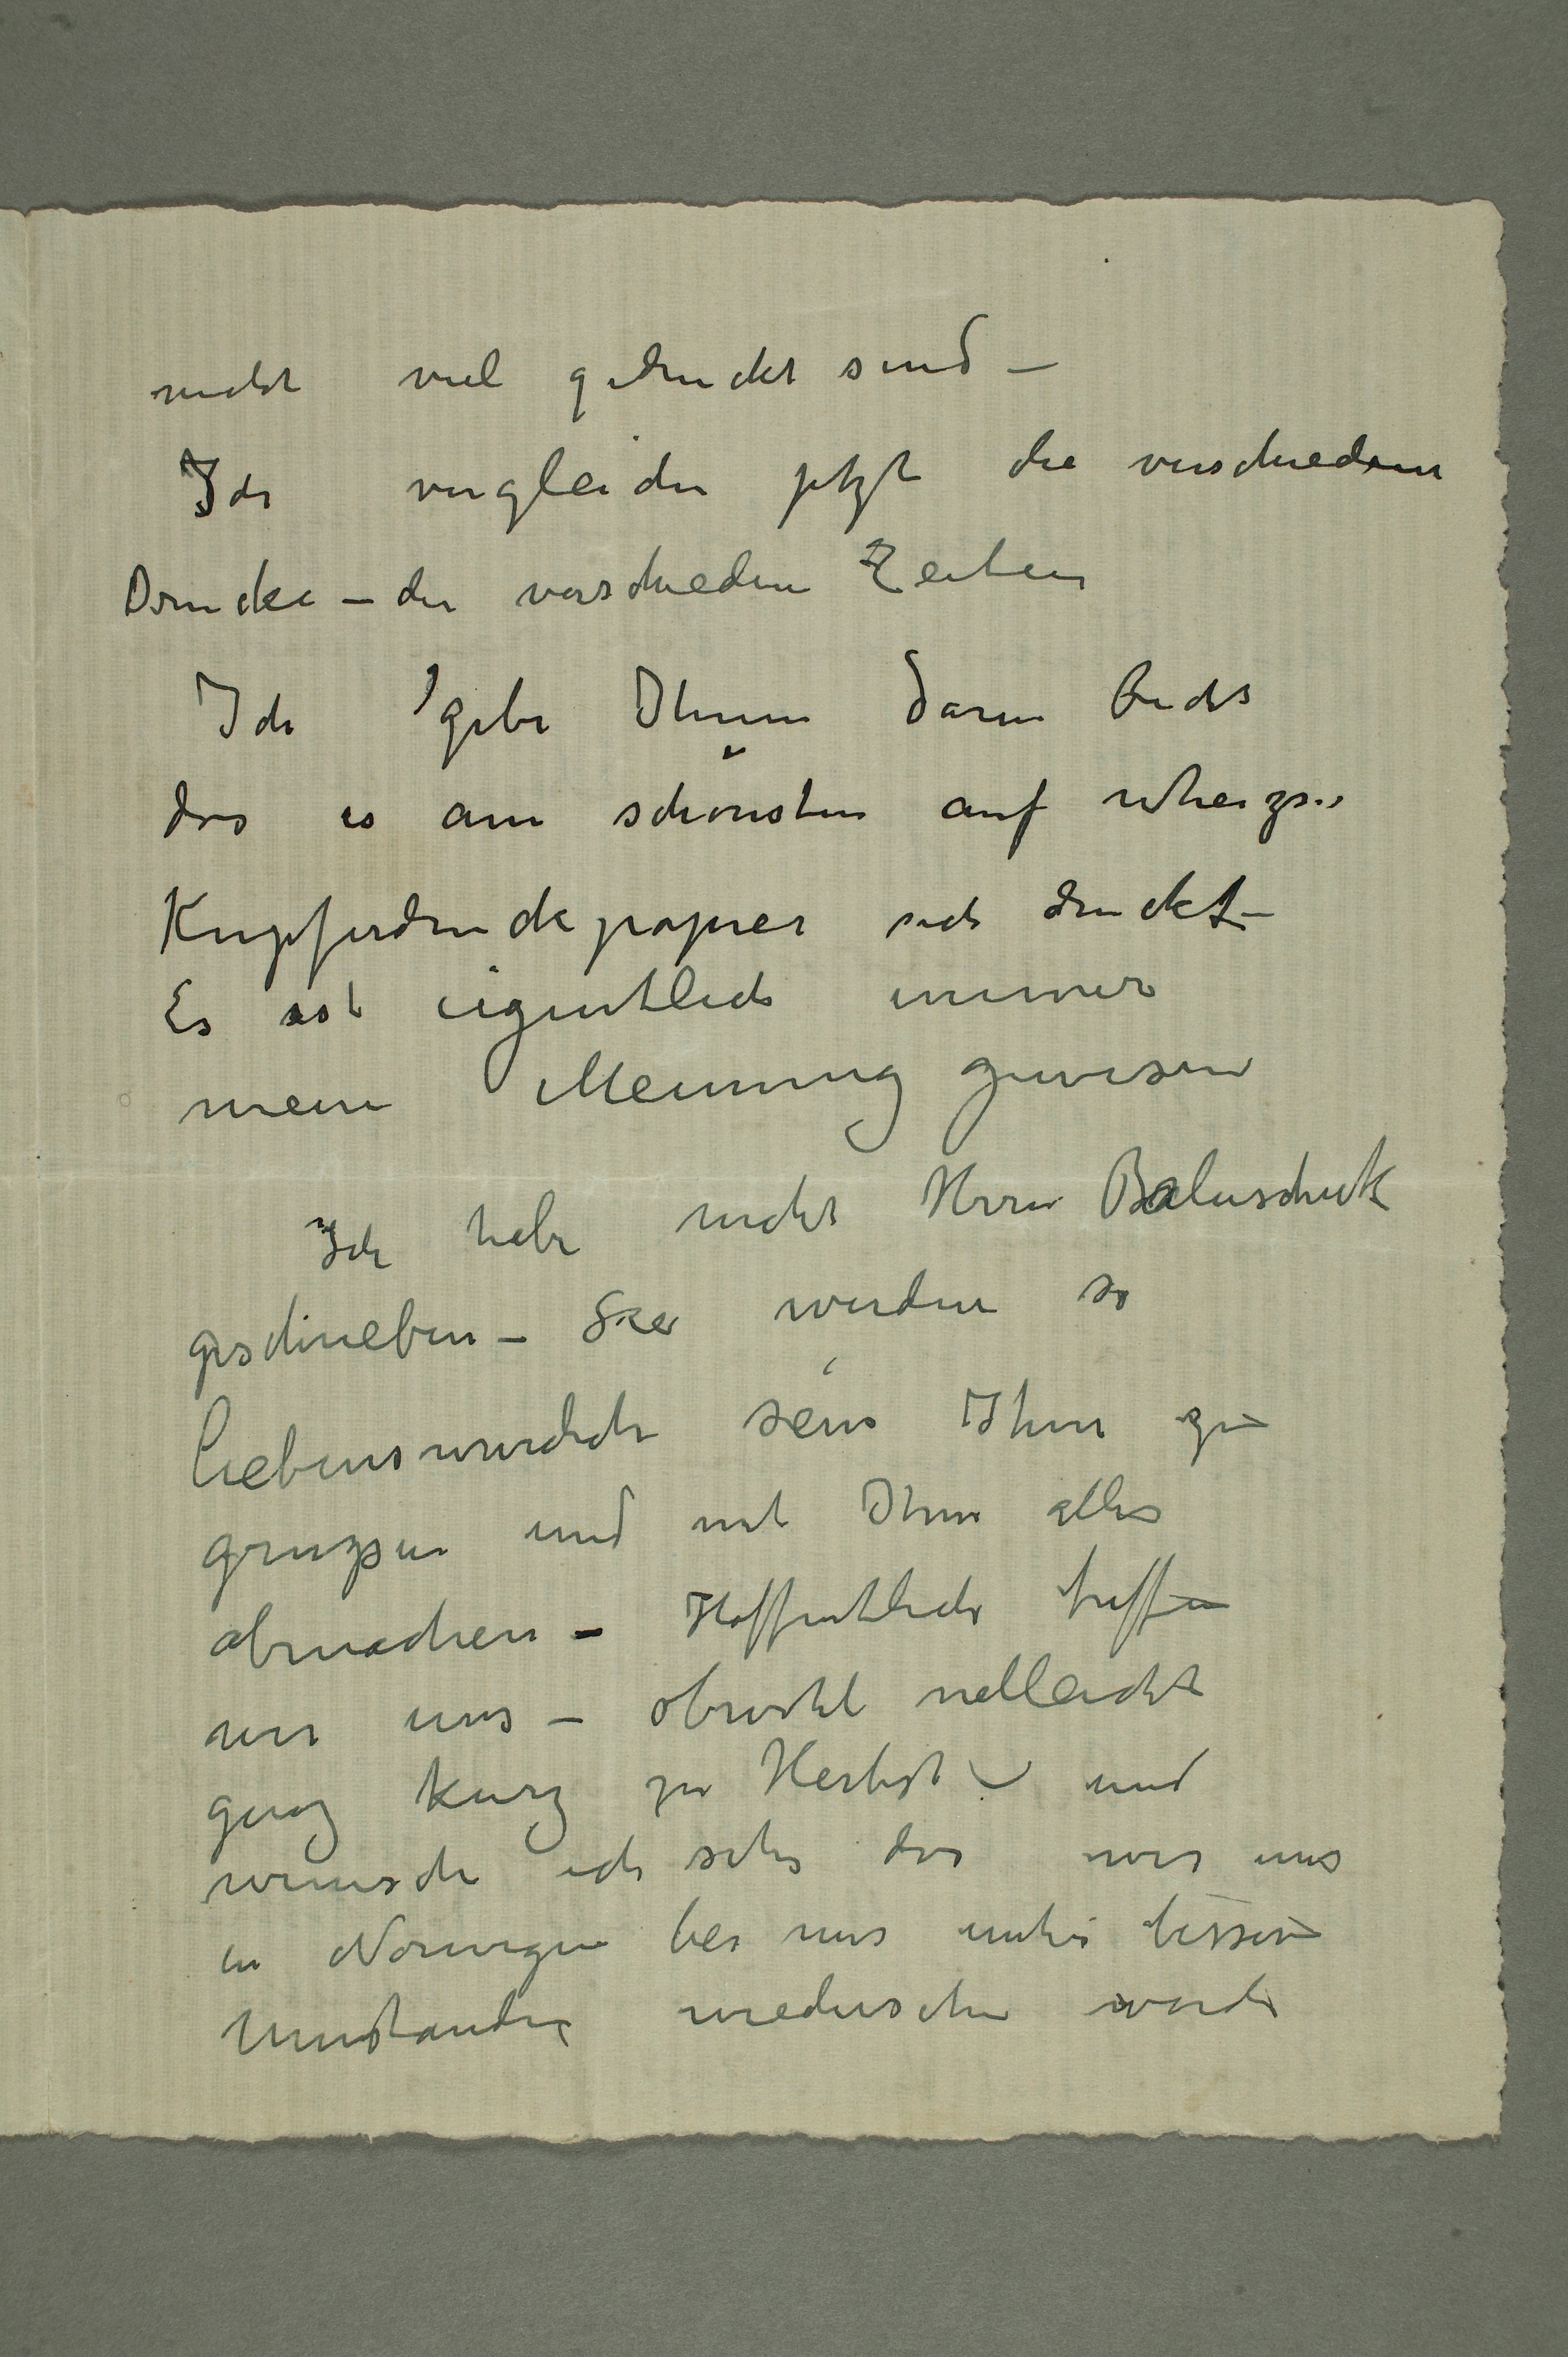 nicht viel gedruckt sind –
Ich vergleiche jetzt die verschiedenen
Drucke – der verschiedene Zeiten
Ich gebe Ihnen darin Recht
das es am schönsten auf
Kupferdruckpapier sich druckt –
Es ist eigentlich immer
meine Meinung gewesen
Ich habe nicht Herrn Baluschek
geschrieben – Sie werden so
liebenswurdich sein Ihm zu
gruzsen und mit Ihm alles
abmachen – Hoffentlich treffen
wir uns – obwohl vielleicht
ganz kurz zu Herbst – und
wunsche ich sehr das wir uns
in Norwegen bei uns unter bessere
Umstanden